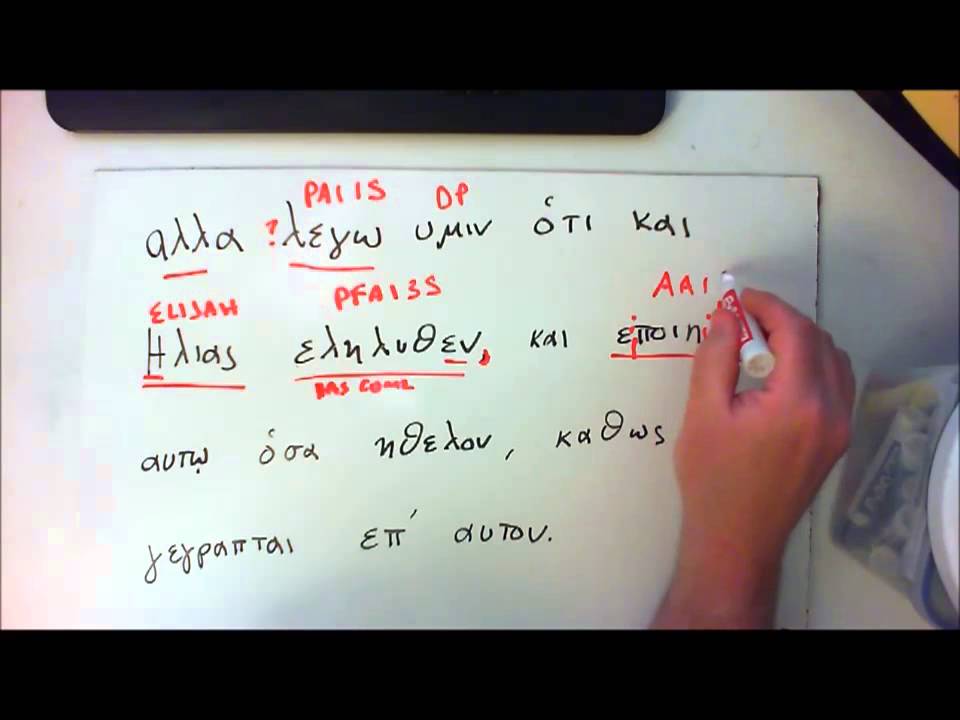 PAI1S DP
αλλα ?λεγω υμιν ὁτι και
ELIJAH PFAI3S AAI
Ηλιας εληλυθεν, και εποιη
HAS COME
αυτῳ ὁσα ηθελον, καθως
γεγραπται επ' αυτον.